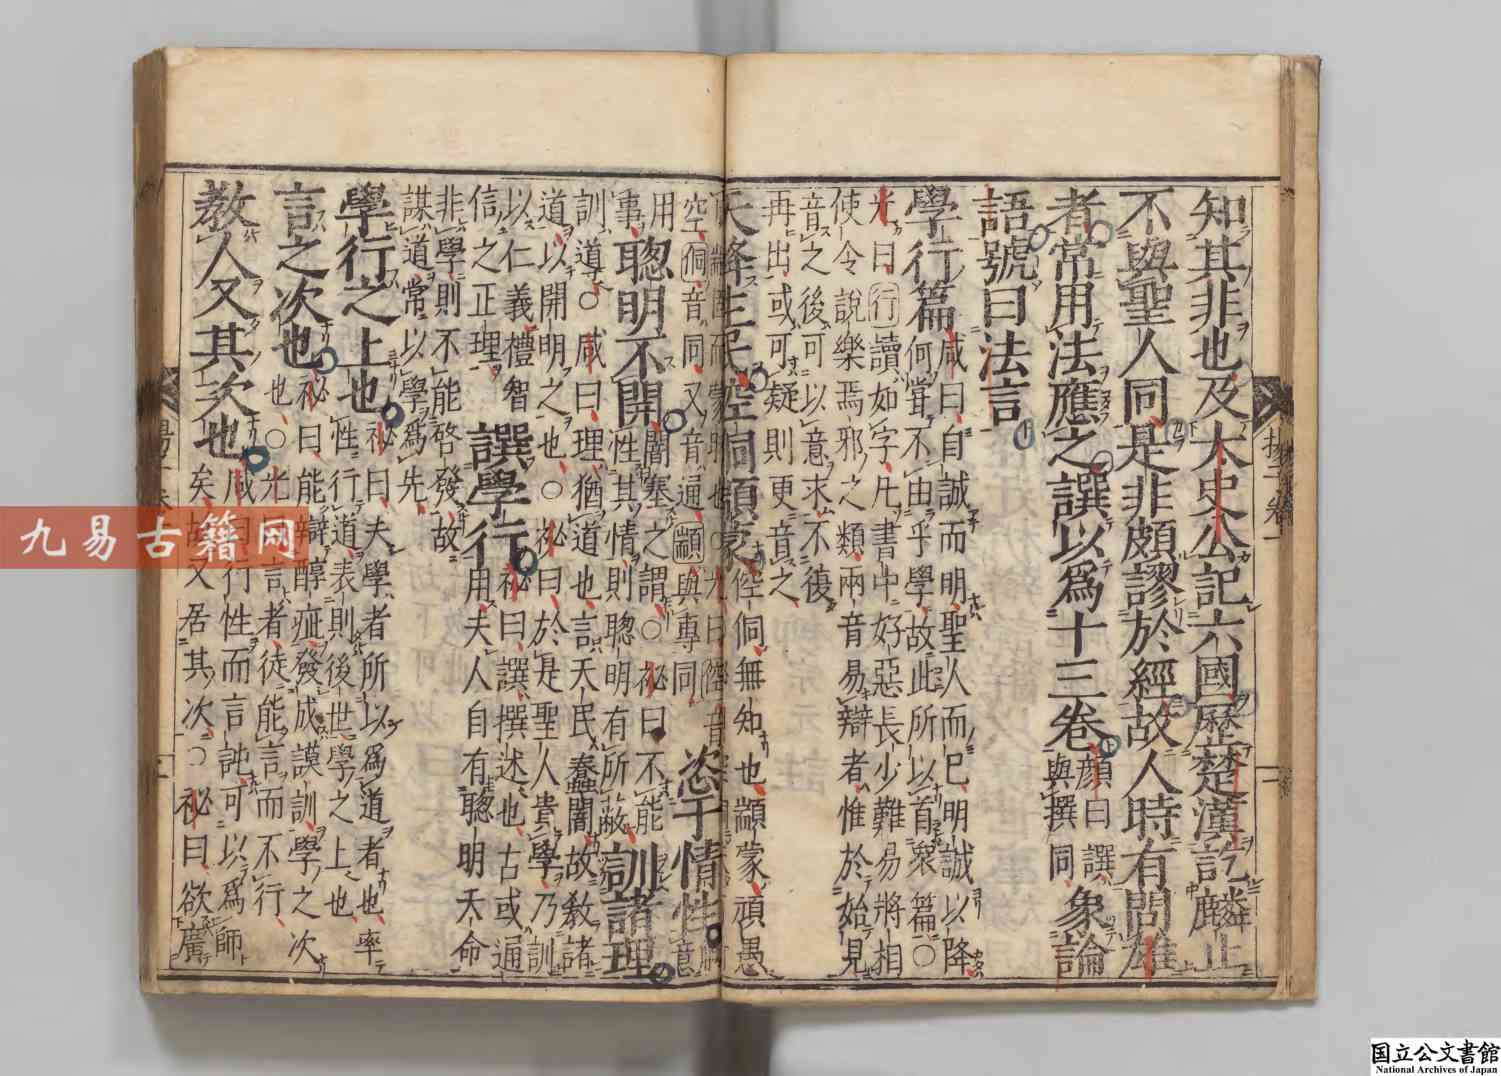 知其非也及太史公記六國歷楚漢訖麟止
不與聖人同是非頗謬於經故人時有問雄
者常用法應之譔以爲十三卷顔曰譔與撰同象論
語號曰法言
學行篇咸曰自誠而明聖人而已明誠以降
何嘗不由乎學故此所以首衆篇○
光曰行讀如字凡書中好惡長少難易將相
使令說樂焉邪之類兩音易辯者惟於始見
音之後可以意求不復
再出或可疑則更音之
天降生民倥侗顓蒙倥侗無知也顓蒙頑愚
空侗音同又音通顓與專同恣于情性
用
事聰明不開闇塞之謂○祕曰不能
性其情則聰明有所蔽訓諸理
訓導○咸曰理猶道也言天民蠢闇故教諸
道以開明之也○祕曰於是聖人貴學乃訓
以仁義禮智譔學行祕曰譔撰述也古或通
信之正理用夫人自有聰明天命
非學則不能啓發故
謀道常以學爲先
學行之上也祕曰夫學者所以爲道者也率
性行道表則後世學之上也
言之次也祕曰能辯醇疵發成謨訓學之次
也○光曰言者徒能言而不行
教人又其次也咸曰行性而言訥可以爲師
矣故又居其次○祕曰欲廣
九易古籍网
国立公文書館
National Archives of Japan